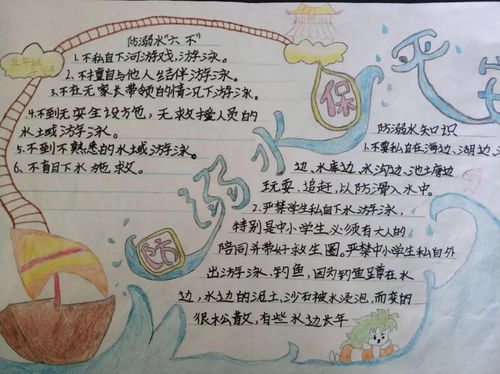 防溺水"六不"
1.不私自下河游戏、游泳。
2.不擅自与他人结伴游泳。
3.不在无家长带领的情况下游泳。
4.不到无安全设施,无救援人员的
水土或游泳。
5.不到不熟悉的水土或游泳。
6.不盲目下水施救。
防溺水
保平安
防溺水知识
1.不要私自在海边、湖边、
边、水库边、水沟边、池土唐边
玩耍、追赶,以防滑入水中。
2.严禁学生私自下水游泳,
特别是中小学生必须有大人的
陪同并带好救生圈。严禁中小学生私自外
出游泳、钓鱼,因为钓鱼蹲在水
边,水边的泥土、沙石被水浸泡,而变的
很松散,有些水边长年